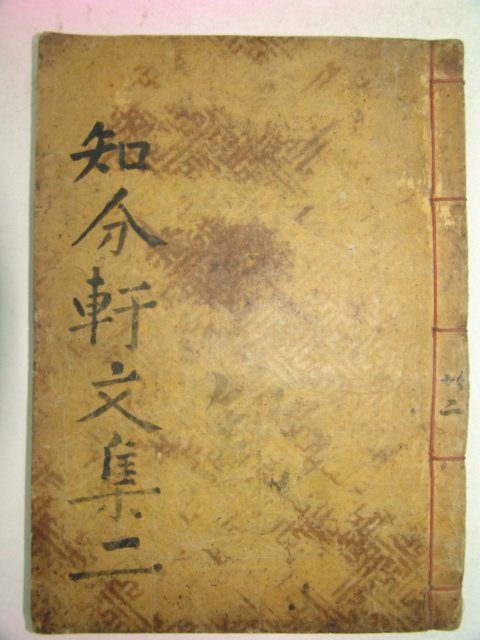 知分軒文集二
共二